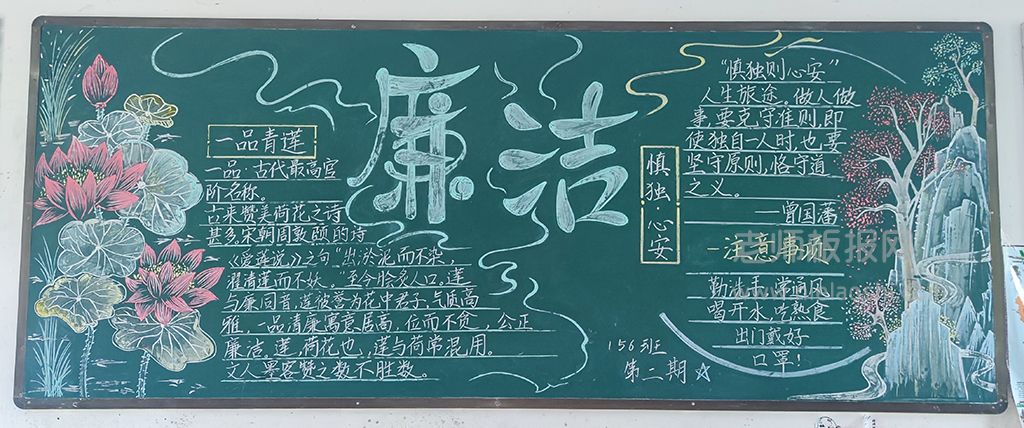 廉洁
一品青莲
一品：古代最高官
阶名称。
古来赞美荷花之诗
甚多宋朝周敦颐的诗
《爱莲说》之句“出淤泥而不染，
濯清莲而不妖。”至今脍炙人口。莲
与廉同音，莲被誉为花中君子，气质高
雅，一品清廉寓意居高，位而不贪，公正
廉洁，莲，荷花也，莲与荷常混用。
文人墨客赞之数不胜数。
慎独心安
“慎独则心安”
人生旅途，做人做
事，要克守准则，即
使独自一人时，也要
坚守原则，恪守道
之义。
—曾国藩
注意事项
勤洗手，常通风
喝开水，吃熟食
出门戴好
口罩！
156班
第二期☆
老师板报网